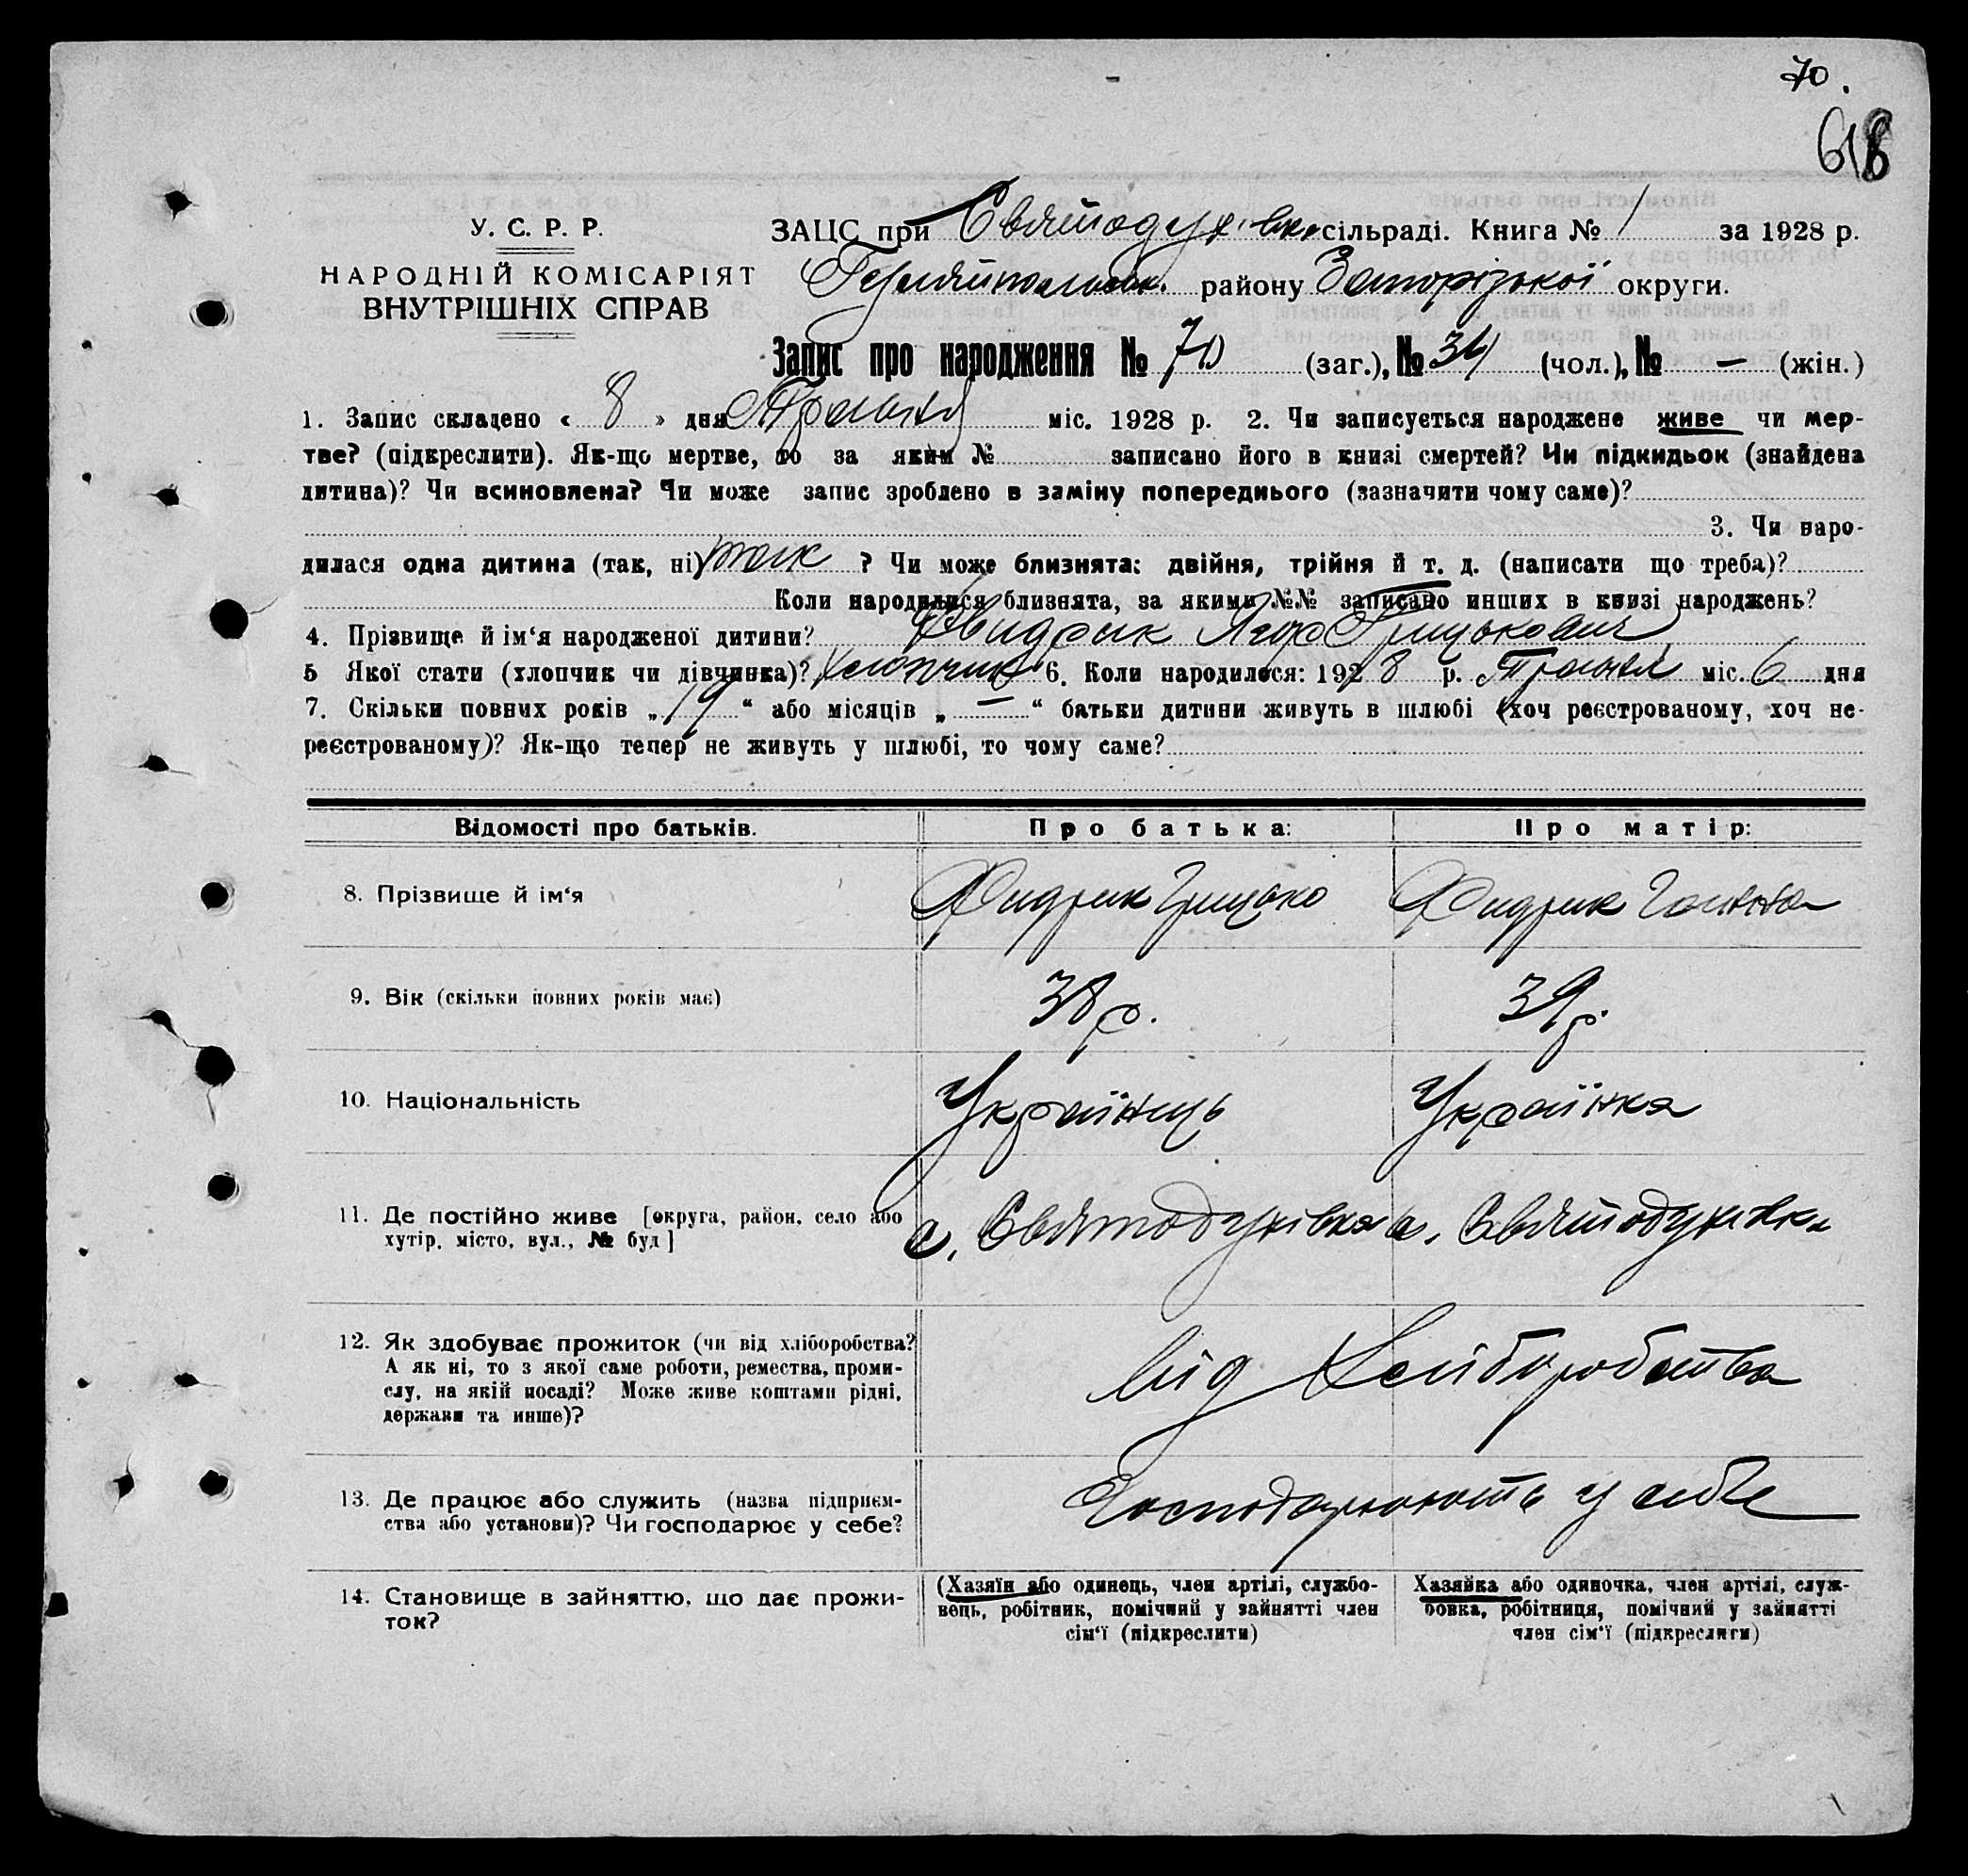 70.
68
У. С. Р. Р.
НАРОДНІЙ КОМІСАРІЯТ
ВНУТРІШНІХ СПРАВ
ЗАЦС при Святодухівськ. сільраді. Книга № 1 за 1928 р.
району Запорізької округи.
Запис про народження № 70 (заг.), № 34 (чол.), № — (жін.)
1. Запис складено « 8 » дня Травня міс. 1928 р. 2. Чи записується народжене живе чи мер-
тве? (підкреслити). Як-що мертве, то за яким № записано його в книзі смертей? Чи підкидьок (знайдена
дитина)? Чи всиновлена? Чи може запис зроблено в заміну попереднього (зазначити чому саме)?
3. Чи наро-
дилася одна дитина (так, ні) так ? Чи може близнята: двійня, трійня й т. д. (написати що треба)?
Коли народилися близнята, за якими №№ записано инших в книзі народжень?
4. Прізвище й ім‘я народженої дитини? Грицькович
5 Якої стати (хлопчик чи дівчинка)? Хлопчик 6. Коли народилося: 1928 р. Травня міс. 6 дня
7. Скільки повних років „ 19 “ або місяців „ — “ батьки дитини живуть в шлюбі (хоч реєстрованому, хоч не-
реєстрованому)? Як-що тепер не живуть у шлюбі, то чому саме?
Відомості про батьків. Про батька: Про матір:
8. Прізвище й ім‘я Фидрик Грицько Фидрик Ганна
9. Вік (скільки повних років має) 38 р. 39 р.
10. Національність Українець Українка
11. Де постійно живе [округа, район, село або
хутір, місто, вул., № буд] с. Святодухівка с. Святодухівка
12. Як здобуває прожиток (чи від хліборобства?
А як ні, то з якої саме роботи, ремества, проми-
слу, на якій посаді? Може живе коштами рідні,
держави та инше)?
від Хліборобства
13. Де працює або служить (назва підприєм-
ства або установи)? Чи господарює у себе?
Господарюють у себе
14. Становище в зайняттю, що дає прожи-
ток?
(Хазяїн або одинець, член артілі, службо-
вець, робітник, помічний у зайнятті член
сім‘ї (підкреслити)
Хазяйка або одиночка, член артілі, служ-
бовка, робітниця, помічний у зайнятті
член сім‘ї (підкреслити)